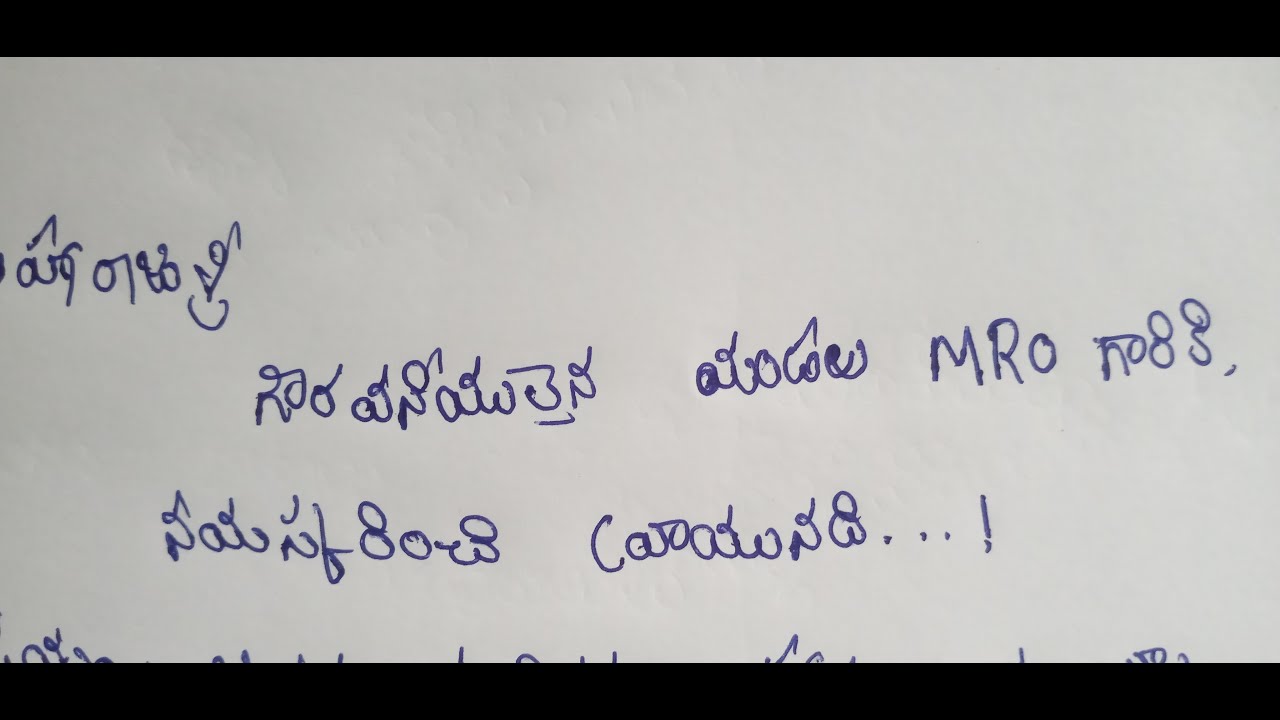 మహారాజశ్రీ
గౌరవనీయులైన మండల MRO గారికి,
నమస్కరించి వ్రాయునది....!